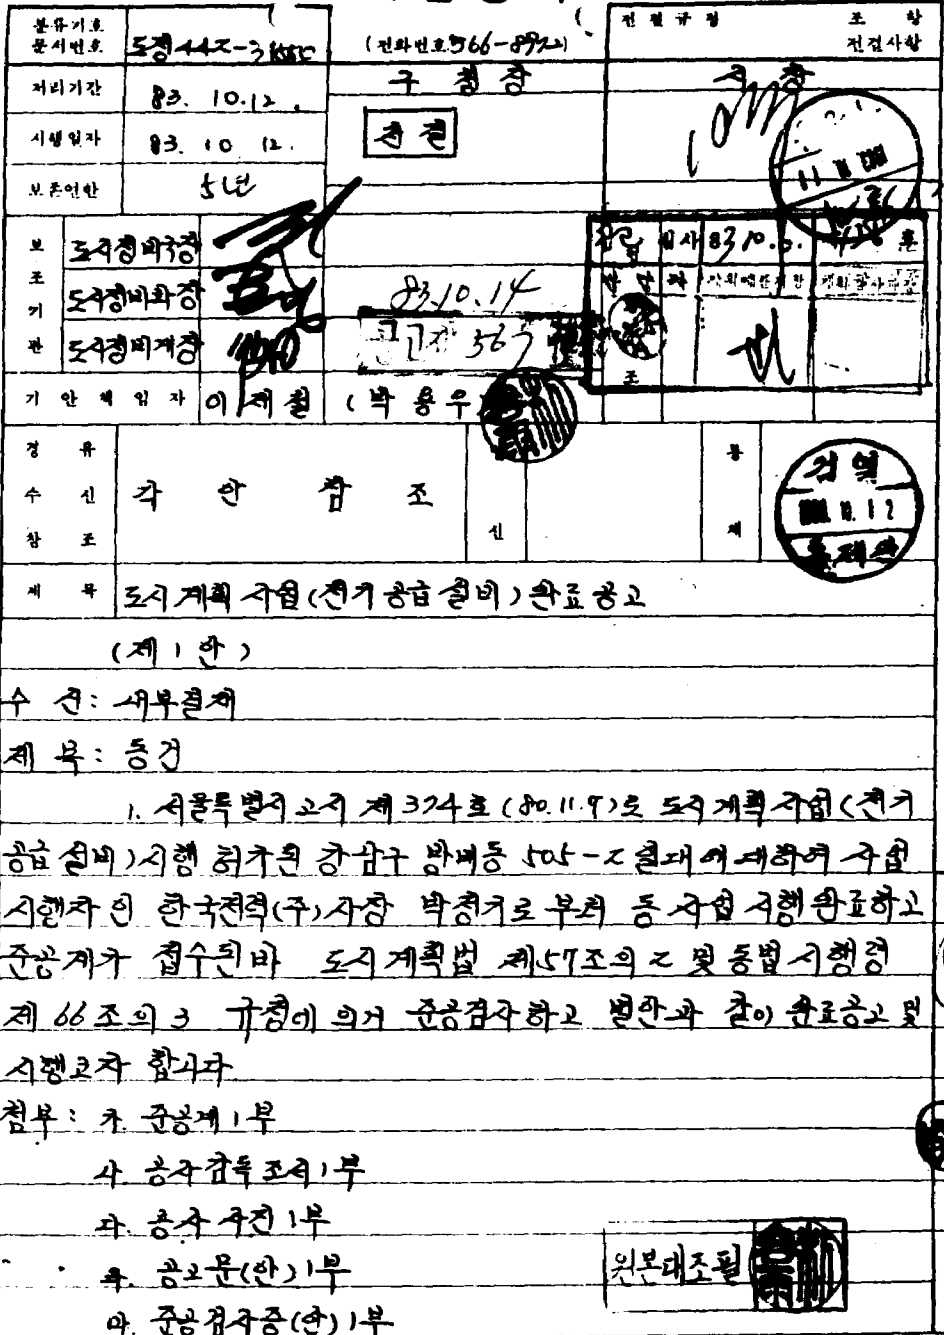 분류기호 문서번호 도정442-3 (전화번호 566-8922) 전결규정 조 항 전결사항
처리기간 83. 10. 12. 구청장 시장
시행일자 83. 10 12. 전결
보존연한 5년
보조기관 도시정비국장
도시정비과장 83.10.14
도시정비계장 공고 제 567
심사 83.10.
기안책임자 이재철 (박용우)
경유 수신 참조 각 안 참조 신 통제
검열 통제관
제 목 도시계획사업(전기공급설비)완료공고
(제1안)
수 신: 내부결재
제 목: 동건
1. 서울특별시고시 제374호(80.11.7)로 도시계획사업(전기
공급설비)시행 허가된 강남구 방배동 505-2 일대에 대하여 사업
시행자인 한국전력(주)사장 박정기로 부터 동 사업 시행완료하고
준공계가 접수된바 도시계획법 제57조의2 및 동법시행령
제66조의3 규정에 의거 준공검사하고 별안과 같이 완료공고 및
시행코자 합니다.
첨부: 가. 준공계 1부
나. 공사감독조서 1부
다. 공사사진 1부
라. 공고문(안) 1부
마. 준공검사증(안) 1부
원본대조필